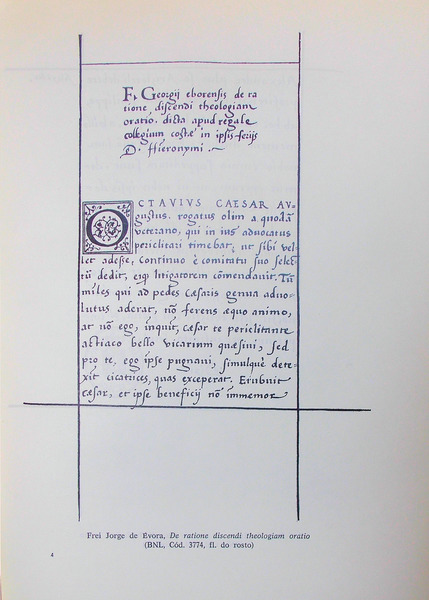 F. Georgij eborensis de ra
tione, discendi theologiam
oratio. dicta apud regale
collegium costæ in ipsis ferijs
D. Hieronymi.
OCTAVIUS CAESAR AU-
gustus. rogatus olim a quodã
veterano, qui in ius advocatus
periclitari timebat, ut sibi vel-
let adesse, continuo è comitatu suo selec-
tũ dedit, eiq litigatorem cõmendavit. Tũ
miles qui ad pedes Cæsaris genua advo-
lutus aderat, nõ ferens æquo animo,
at nõ ego, inquit, cæsar te periclitante
actiaco bello vicarium quæsivi, sed
pro te, ego ipse pugnavi, simulquè dete-
xit cicatrices, quas exceperat. Erubuit
cæsar, et ipse beneficij nõ immemor
Frei Jorge de Évora, De ratione discendi theologiam oratio
(BNL, Cód. 3774, fl. do rosto)
4